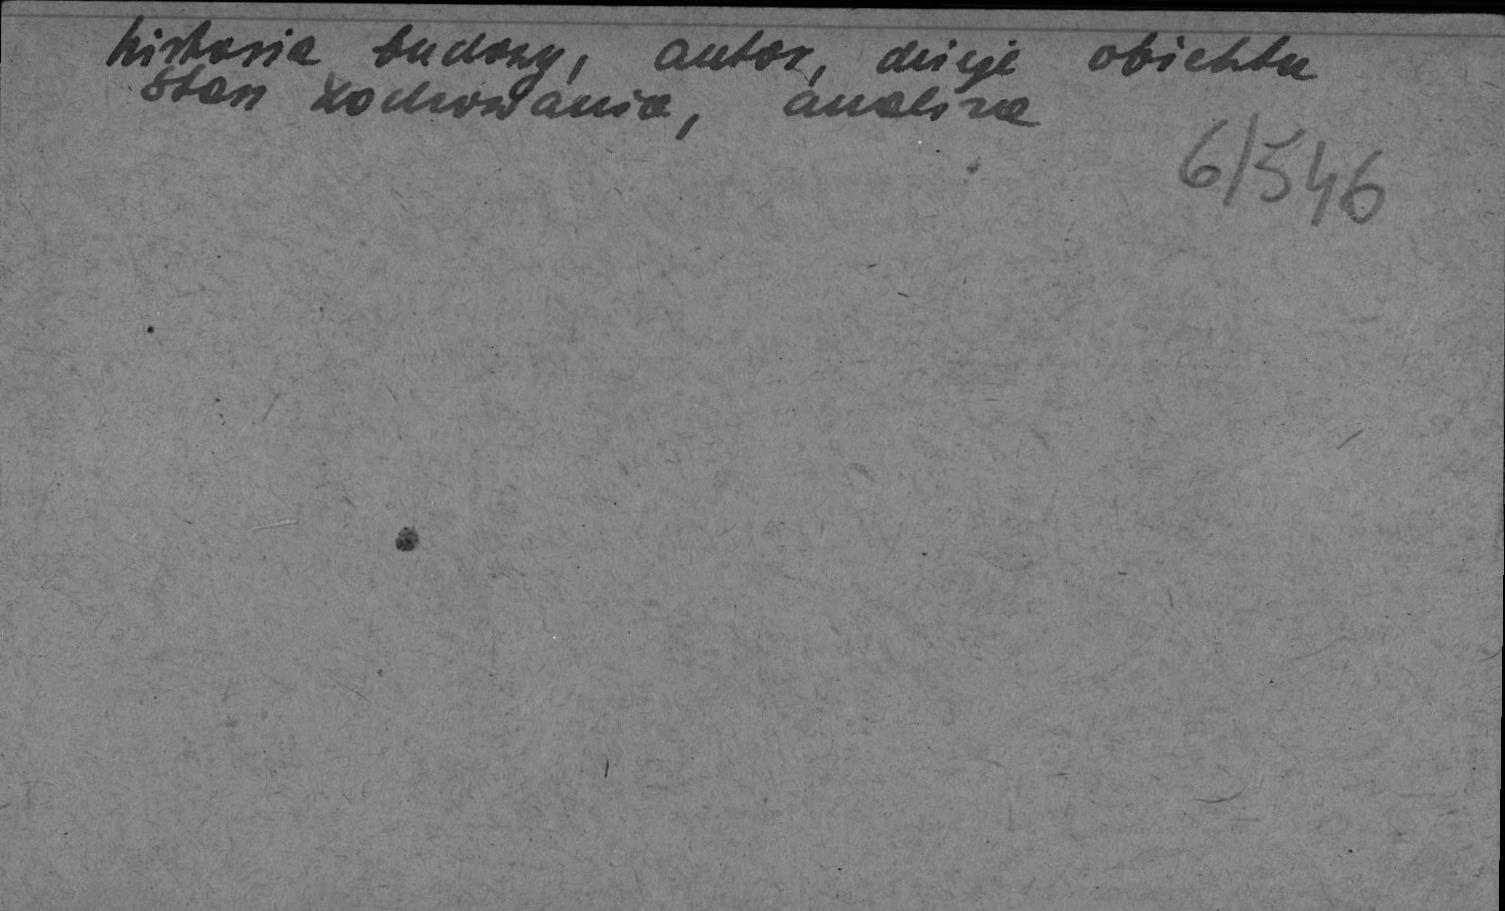 historia budowy, autor, dzieje obiektu
stan zachowania, analiza
6/546